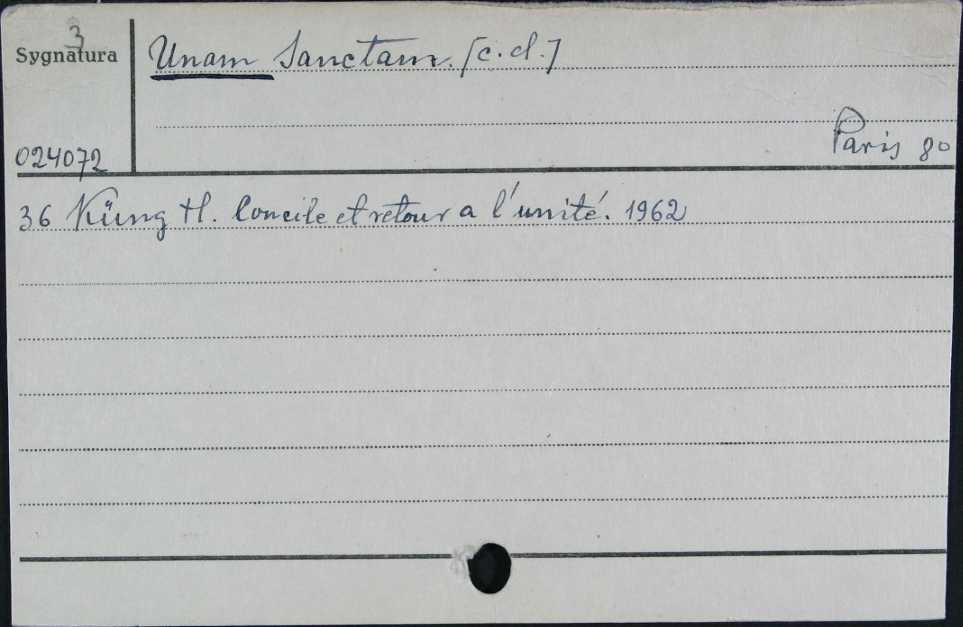 3
Sygnatura
Unam Sanctam. [c.d.]
Paris 8o
024072
36 Küng H. Concile et retour a l'unité. 1962